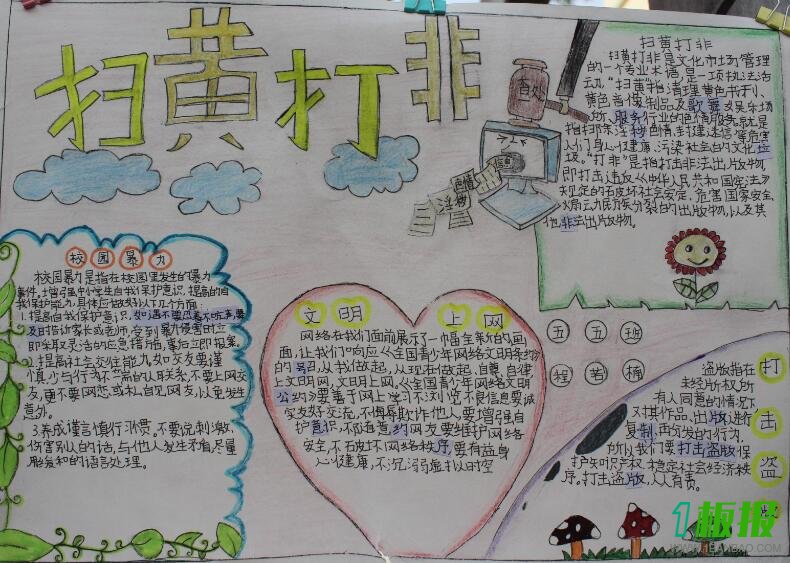 扫黄打非
查处
色情
淫秽
扫黄打非
扫黄打非是文化市场管理
的一个专业术语,是一项执法活
动。"扫黄"指清理黄色书刊、
黄色音像制品及歌舞娱乐场
所、服务行业的色情服务,就是
指扫除淫秽色情,封建迷信等危害
人们身心健康、污染社会的文化垃
圾。"打非"是指打击非法出版物,
即打击违反《中华人民共和国宪法》
规定的破坏社会安定、危害国家安全、
煽动民族分裂的出版物,以及其
他非法出版物。
校园暴力
校园暴力是指在校园里发生的暴力
事件,增强中小学生自我保护意识,提高的自
我保护能力,具体应做好以下几个方面
1.提高自我保护意识,
及时告诉家长或老师,受到暴力侵害时立
即采取灵活的应急措施,事后立即报案。
2.提高社会交往能力如交友要谨
慎,少与行为不
友,更不要网恋或私自见网友,以免发生
意外。
3.养成谨言慎行
伤害别人的话,与他人发生矛盾尽量
用缓和的语言处理。
文明上网
网络在我们面前展示了一幅全新的画
面,让我们"响应《全国青少年网络文明公约》
的号召,从我做起,从现在做起,自尊,自律
上文明网,文明上网。《全国青少年网络文明
公约》要善于网上学习不浏览不良信息要诚
实友好交流,不侮辱欺诈他人,要增强自
护意识,不随意约网友要维护网络
安全,不破坏网络秩序,要有益身
心健康,不沉溺虚拟时空
五五班
程若楠
打击盗版
盗版指在
未经版权所
有人同意的情况下
对其作品、出版进行
复制,再分发的行为,
所以我们要打击盗版保
护知识产权,稳定社会经济秩
序。打击盗版,人人有责。
1板报
WWW.1BANBAO.COM